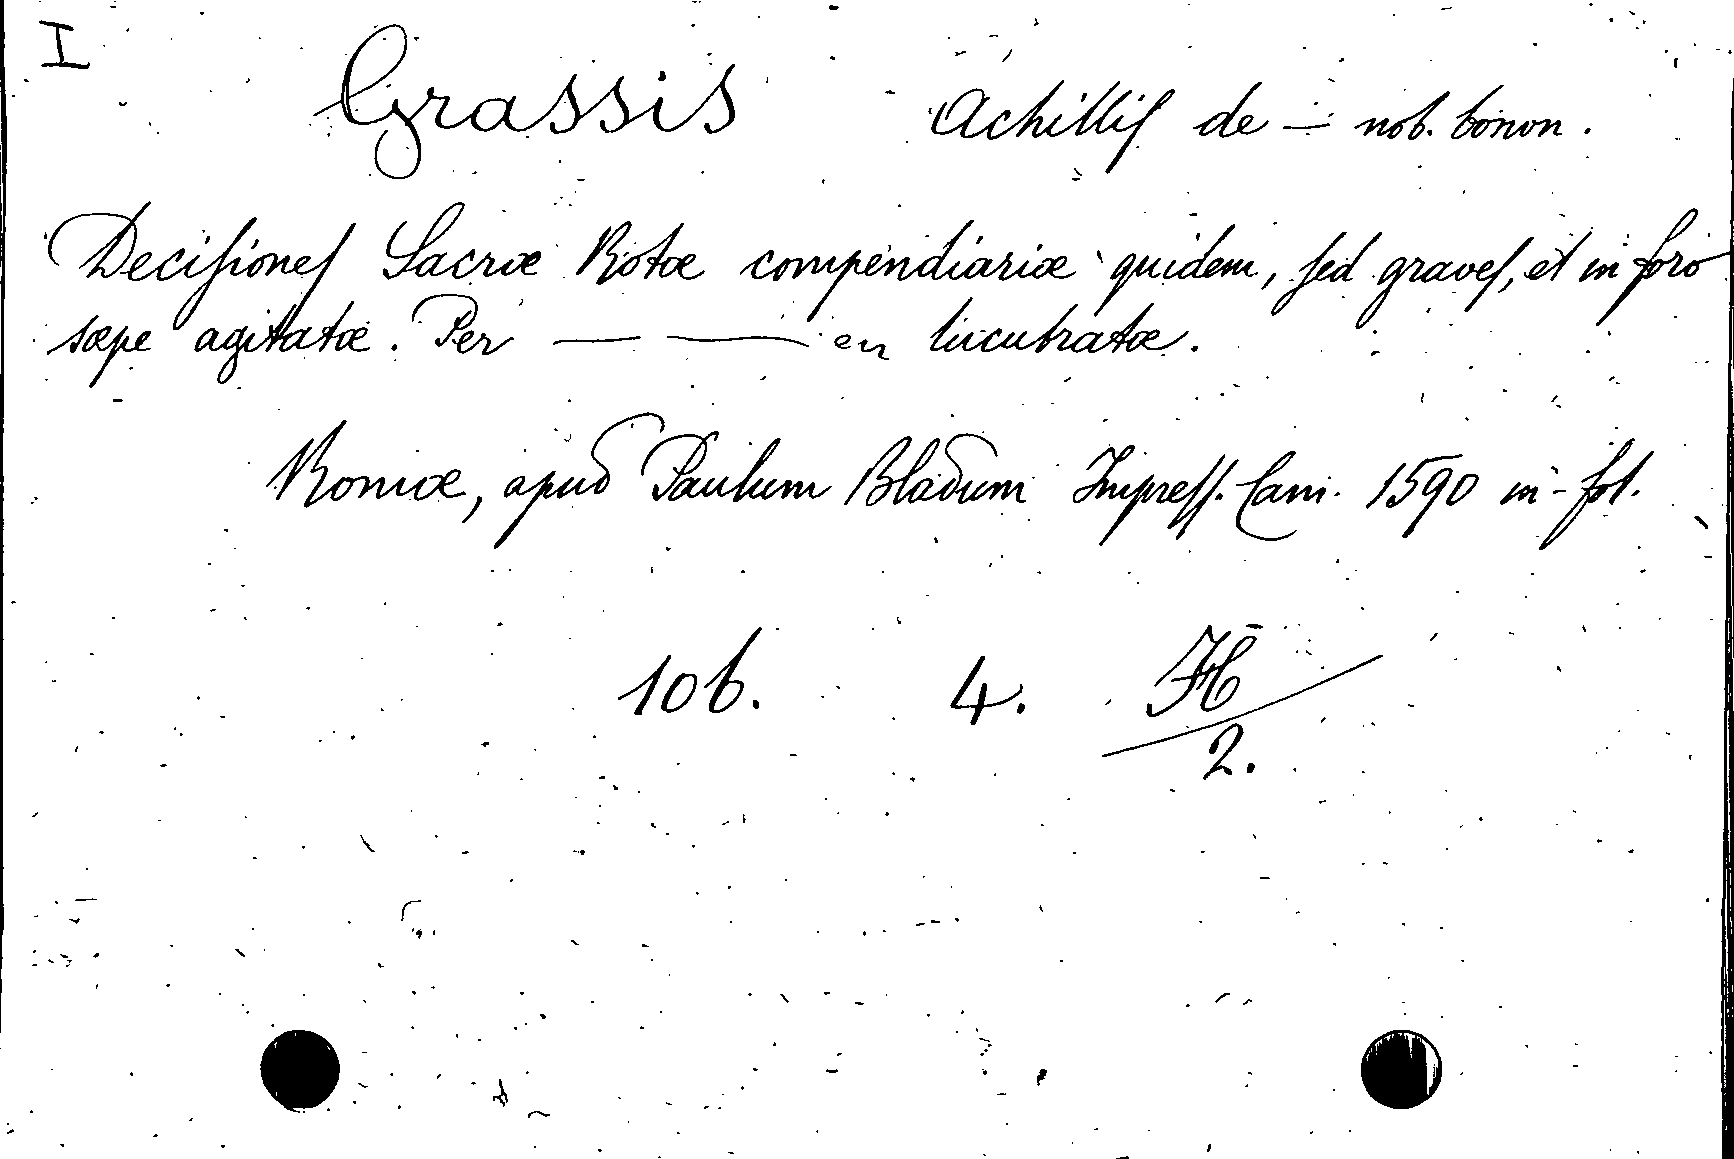 I
Grassis Achilliſ de — nob. bonon.
Deciſioneſ Sacræ Rotæ compendiariæ quidem, ſed graveſ, et in foro
sæpe agitatæ. Per — — en lucubratæ.
Romæ, apud Paulum Bladum Impreſſ. Cam. 1590 in-fol.
106. 4. H
2.